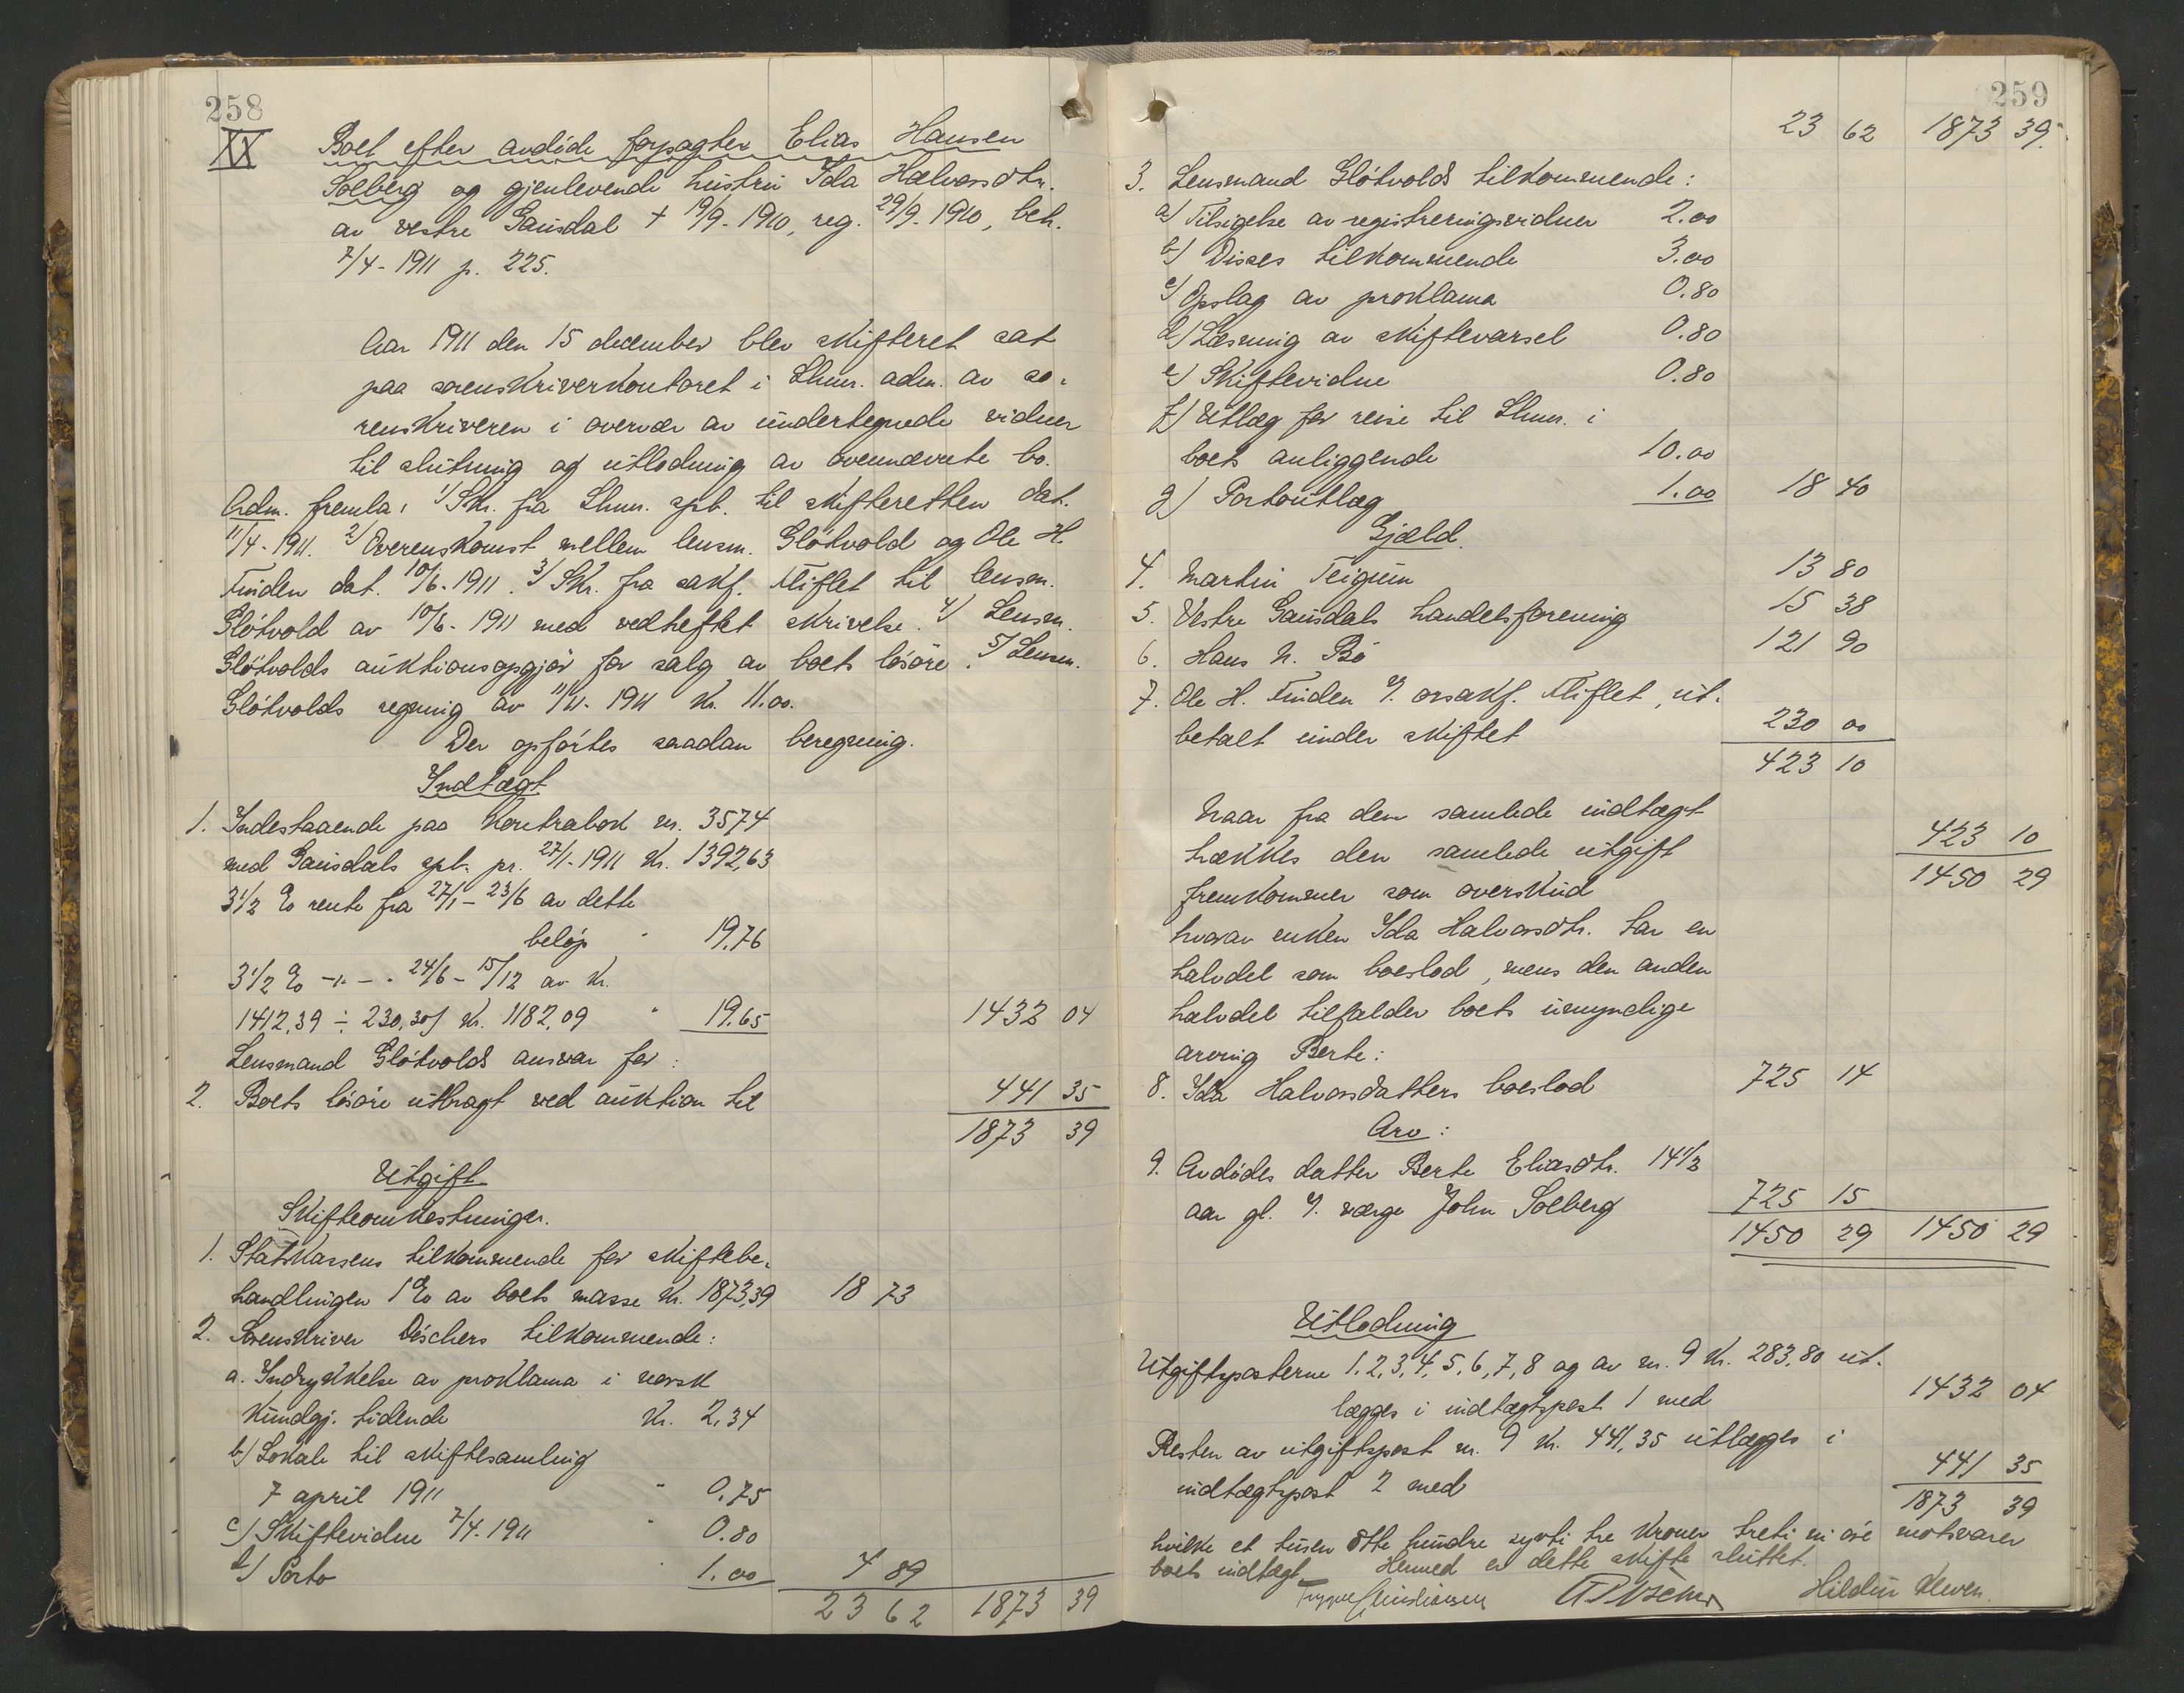 258
XX
Boet efter avdöde forpagter Elias Hansen
Solberg og gjenlevende hustru Ida Halvorsdtr.
av vestre Gausdal † 19/9-1910, reg. 29/9-1910, beh.
7/4-1911 p. 225.
Aar 1911 den 15 december blev skifteret sat
paa sorenskriverkontoret i Lhmr. adm. av so-
renskriveren i overvær av undertegnede vidner
til slutning og utlodning av ovennævnte bo.
Adm. fremla: 1/ Skr. fra Lhmr. spb. til skifteretten dat.
11/4-1911. 2/ Overenskomst mellem lensm. Glötvold og Ole H.
Finden dat. 10/6-1911. 3/ Skr. fra sakf. Fliflet til lensm.
Glötvold av 10/6-1911 med vedheftet skrivelse. 4/ Lensm.
Glötvolds auktionsopgjör for salg av boets lösöre. 5/ Lensm.
Glötvolds regning av 11/11-1911 Kr. 11.00.
Der opförtes saadan beregning.
Indtægt
1. Indestaaende paa Kontrabok nr. 3574
med Gausdals spb. pr. 27/1-1911 Kr. 1392,63
3 1/2 % rente fra 27/1 - 23/6 av dette
belöp " 19.76
3 1/2 % -"- - " 24/6 - 15/12 av Kr.
1412,39 ÷ 230,30/ Kr. 1182,09 " 19.65 1432 04
Lensmand Glötvolds ansvar for:
2. Boets lösöre utbragt ved auktion til 441 35
1873 39
Utgift
Skifteomkostninger.
1. Statskassens tilkommende for skiftebe-
handlingen 1 % av boets masse Kr. 1873,39 18 73
2. Sorenskriver Döschers tilkommende:
a. Indrykkelse av proklama i norsk
Kundgj. tidende Kr. 2,34
b/ Lokale til skiftesamling
7 april 1911 " 0.75
c/ Skiftevidne 7/4-1911 " 0.80
d/ Porto " 1.00 4 89
23 62 1873 39
259
23 62 1873 39.
3. Lensmand Glötvolds tilkommende:
a/ Tilsigelse av registreringsvidner 2.00
b/ Disses tilkommende 3.00
c/ Opslag av proklama 0.80
d/ Læsning av skiftevarsel 0.80
e/ Skiftevidne 0.80
f/ Utlæg for reise til Lhmr. i
boets anliggende 10.00
g/ Portoutlæg 1.00 18 40
Gjæld.
4. Martin Teigum 13 80
5. Vestre Gausdals handelsforening 15 38
6. Hans N. Bö 121 90
7. Ole H. Finden v. orsakf. Fliflet, ut-
betalt under skiftet 230 00
423 10
Naar fra den samlede indtægt
trækkes den samlede utgift 423 10
fremkommer som overskud 1450 29
hvorav enken Ida Halvorsdtr. tar en
halvdel som boeslod, mens den anden
halvdel tilfalder boets umyndige
arving Berte:
8. Ida Halvorsdatters boeslod 725 14
Arv:
9. Avdödes datter Berte Eliasdtr. 14 1/2
aar gl. v. værge John Solberg 725 15
1450 29 1450 29
Utlodning
Utgiftsposterne 1, 2, 3, 4, 5, 6, 7, 8 og av nr. 9 Kr. 283,80 ut-
lægges i indtægtspost 1 med 1432 04
Resten av utgiftspost nr. 9 Kr. 441,35 utlægges i
indtægtspost 2 med 441 35
1873 39
hvilke et tusen otte hundre sytti tre Kroner treti ni öre motsvarer
boets indtægt. Hermed er dette skifte sluttet.
Trygve Christiansen Hildur Kleven.